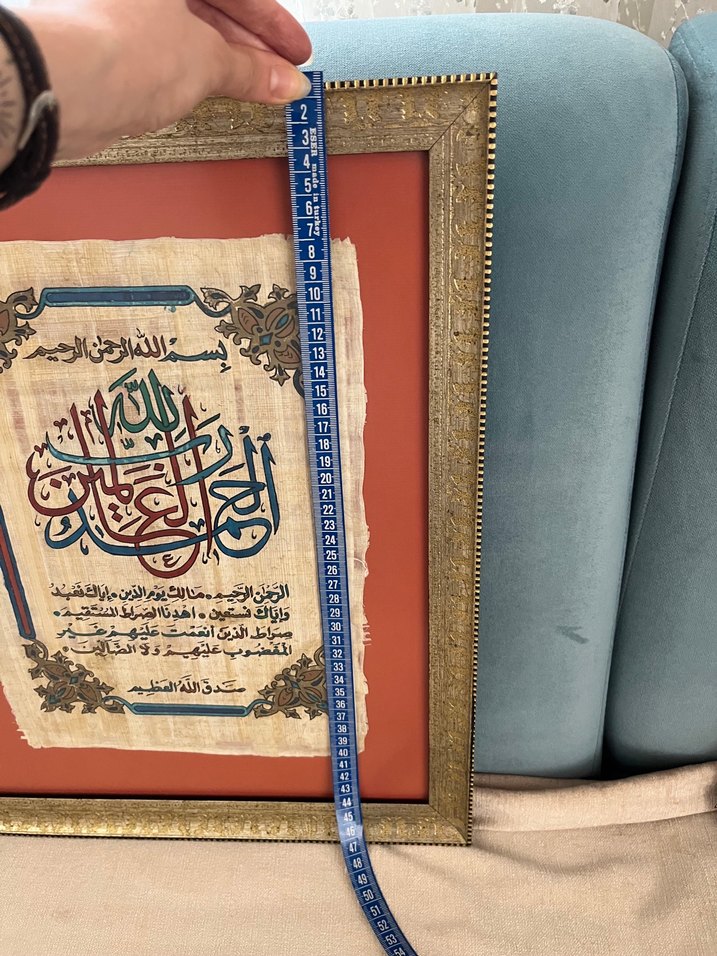 2
3
4
5
6
7
8
9
10
11
12
13
14
15
16
17
18
19
20
21
22
23
24
25
26
27
28
29
30
31
32
33
34
35
36
37
38
39
40
41
42
43
44
45
46
47
48
49
50
51
52
53
54
ESER made in turkey
بسم الله الرحمن الرحيم
الحمد لله رب العالمين
الرحمن الرحيم * مالك يوم الدين * إياك نعبد
وإياك نستعين * اهدنا الصراط المستقيم *
صراط الذين أنعمت عليهم غير
المغضوب عليهم ولا الضالين *
صدق الله العظيم